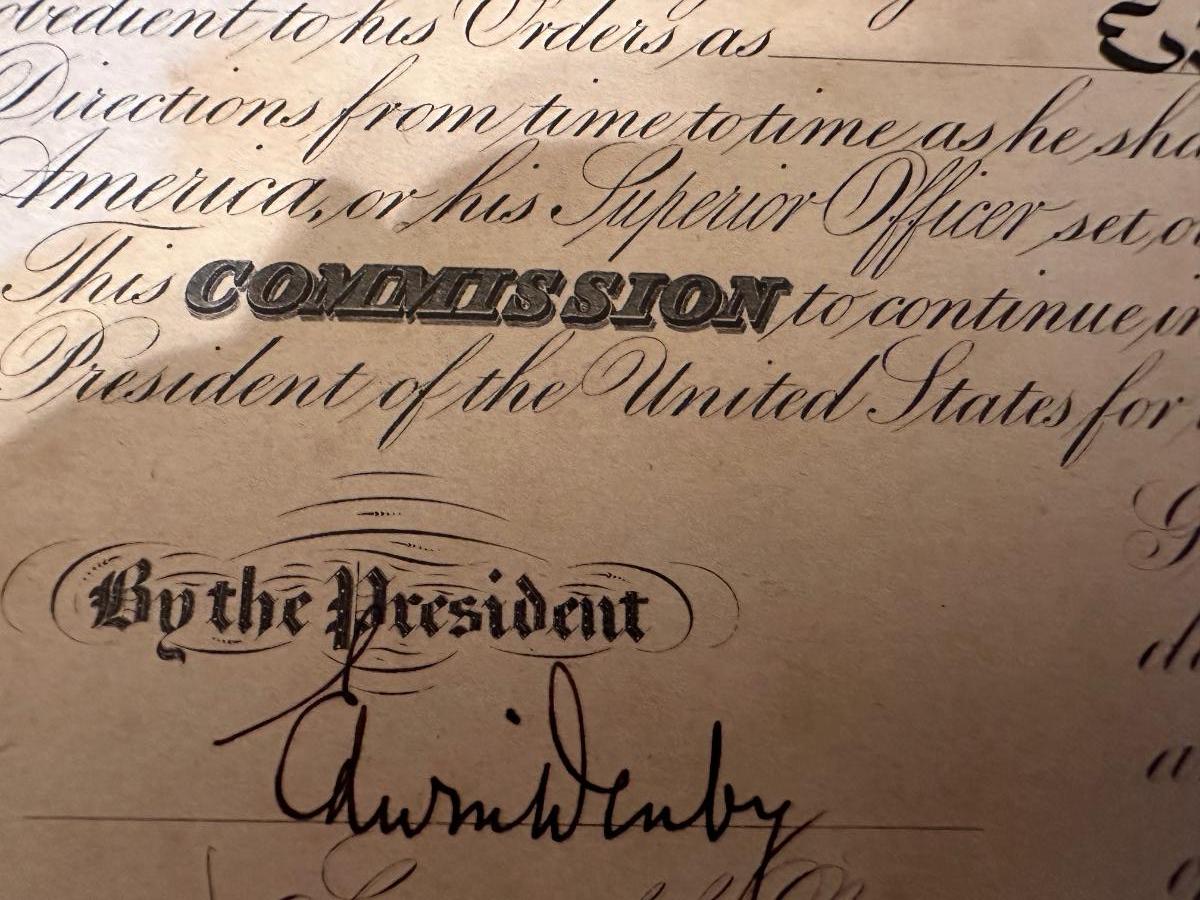 obedient to his Orders as
Directions from time to time as he sha
America, or his Superior Officer set o
This COMMISSION to continue in
President of the United States for
By the President
Edwin Denby